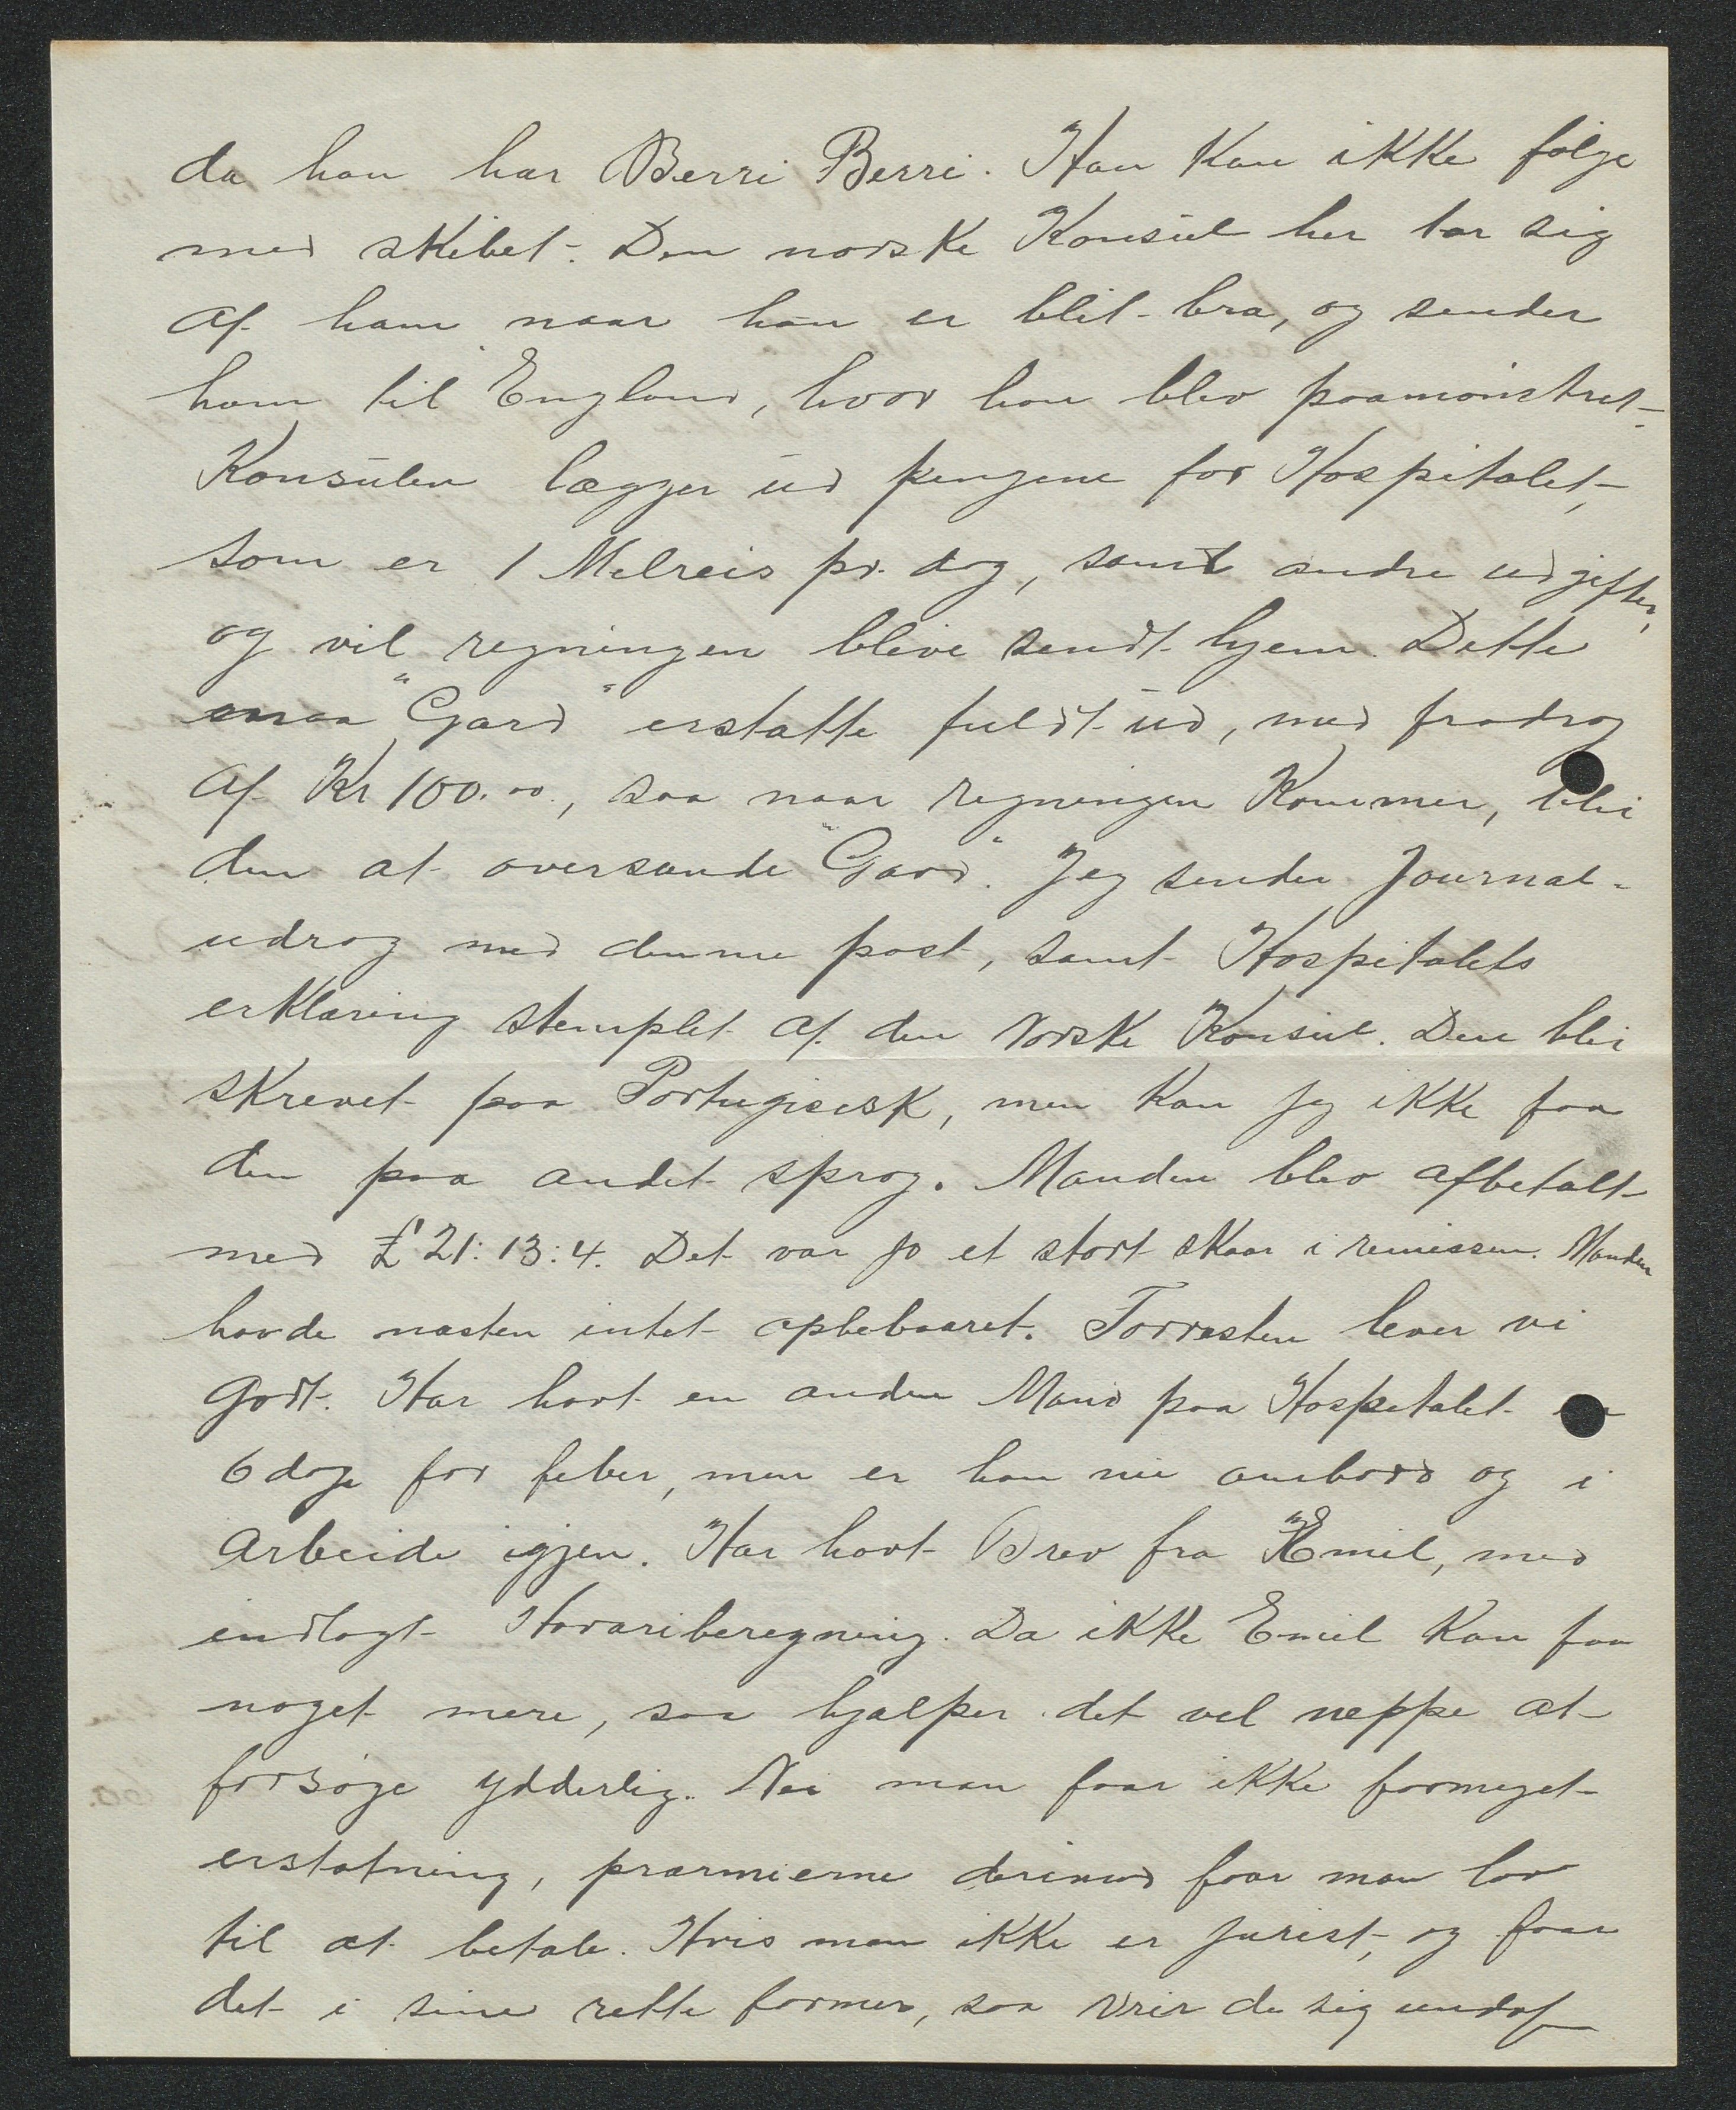 da han har Berri Berri. Han Kan ikke følge
med skibet. Den norske Konsul her tar sig
af ham naar han er blit bra, og sender
ham til England, hvor han blev paamønstret.
Konsulen lægger ud pengene for Hospitalet,
som er 1 Melreis pr. dag, samt andre udgifter,
og vil regningen blive sendt hjem. Dette
maa "Gard" erstatte fuldt ud, med fradrag
af Kr 100.00., saa naar regningen Kommer, blir
den at oversende "Gard". Jeg sender Journal-
udrag med denne post, samt Hospitalets
erklæring stemplet af den Norske Konsul. Den blir
skrevet paa Portugisisk, men Kan jeg ikke faa
den paa andet sprog. Manden blev afbetalt
med £ 21:13:4. Det var jo et stort skaar i remissen. Manden
havde næsten intet opbebaaret. Forresten lever vi
godt. Har havt en anden Mand paa Hospitalet
6 dage for feber, men er han nu ombord og i
arbeide igjen. Har havt Brev fra Emil, med
indlagt Havariberegning. Da ikke Emil Kan faa
noget mere, saa hjælper det vel neppe at
forsøge ydderlig. Nei man faar ikke formeget
erstatning, præmierne derimod faar man lov
til at betale. Hvis man ikke er Jurist, og faar
det i sine rette former, saa vrir de sig undaf